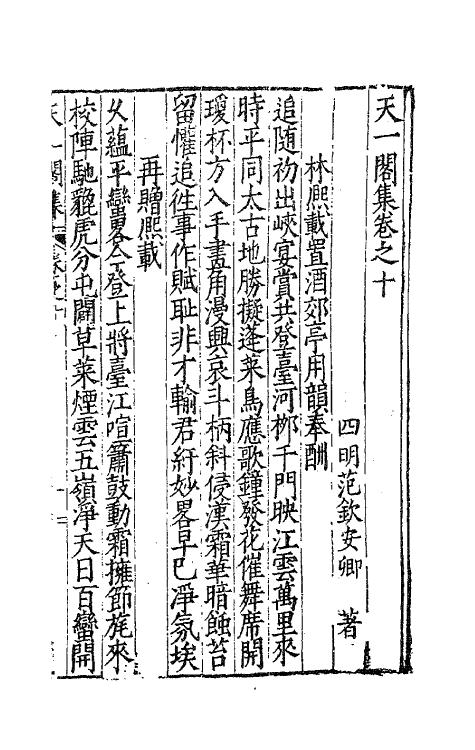 天一閣集卷之十
四明范欽安卿 著
林熈載置酒郊亭用韻奉酬
追隨初出峽宴賞共登臺河栁千門映江雲萬里來
時平同太古地勝擬蓬萊鳥應歌鐘發花催舞席開
瓊杯方入手畫角漫興哀斗柄斜侵漢霜華暗蝕苔
留懽追徃事作賦耻非才輸君紆妙畧早已淨氛埃
再贈熈載
乆蘊平蠻畧今登上將臺江喧簫鼓動霜擁節旄來
校陣馳貔虎分屯闢草萊煙雲五嶺淨天日百蠻開
天一閣集 卷之十 一